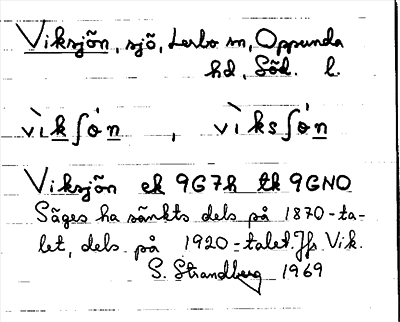 Viksjön, sjö, Lerbo sn, Oppunda
hd, Söd. l.
vìkʃȯn , vìksʃȯn
Viksjön ek 9G7h tk 9GNO
Säges ha sänkts dels på 1870-ta=
let, dels på 1920=talet. Jfs Vik.
S. Strandberg 1969